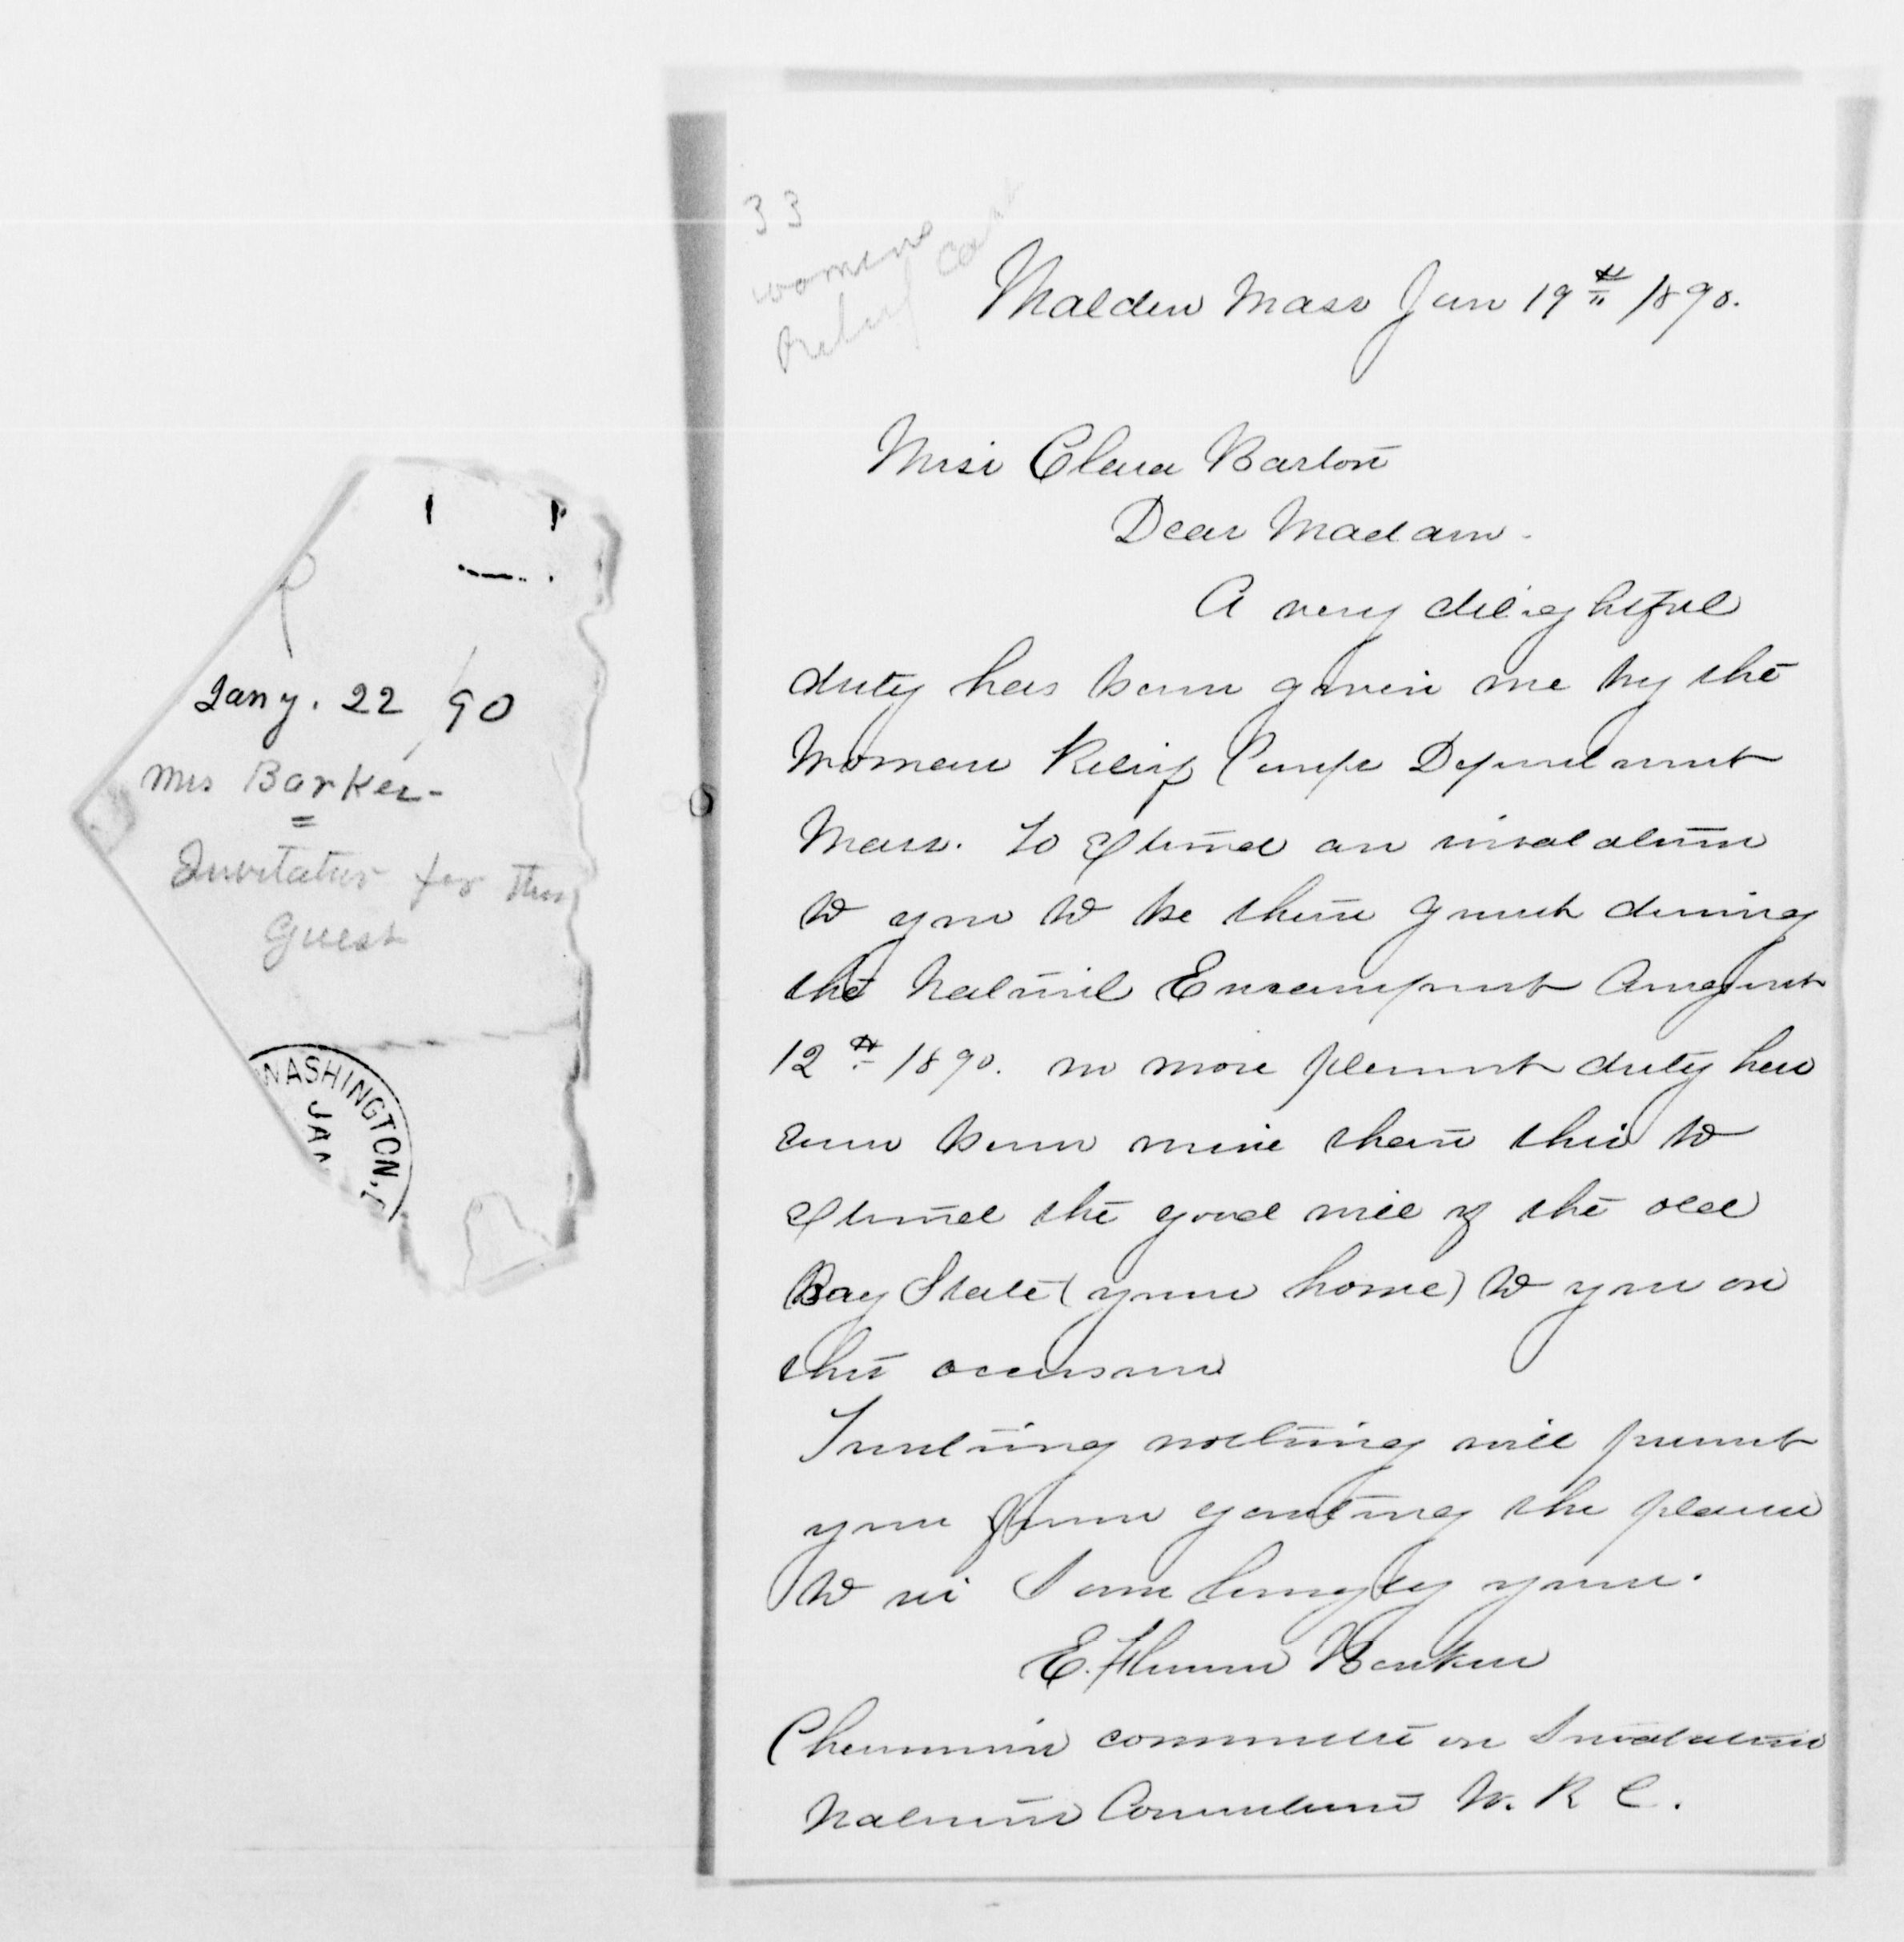 Jany. 22 / 90
Mrs Barker -
=
Invitation for their
Guest
WASHINGTON, D
JAN
33
womens
Relief Corps
Malden Mass Jan 19th 1890.
Miss Clara Barton
Dear Madam.
A very delightful
duty has been given me by the
Womans Relief Corps Department
Mass. To extend an invitation
to you to be their guest during
the National Encampment August
12th 1890. no more pleasant duty has
ever been mine than this to
extend the good will of the old
Bay State (your home) to you on
this occasion
Trusting nothing will prevent
you from granting the pleasure
to us I am loyally yours.
E. Florence Barker
Chairman committee on Invitation
National Convention W. R C.